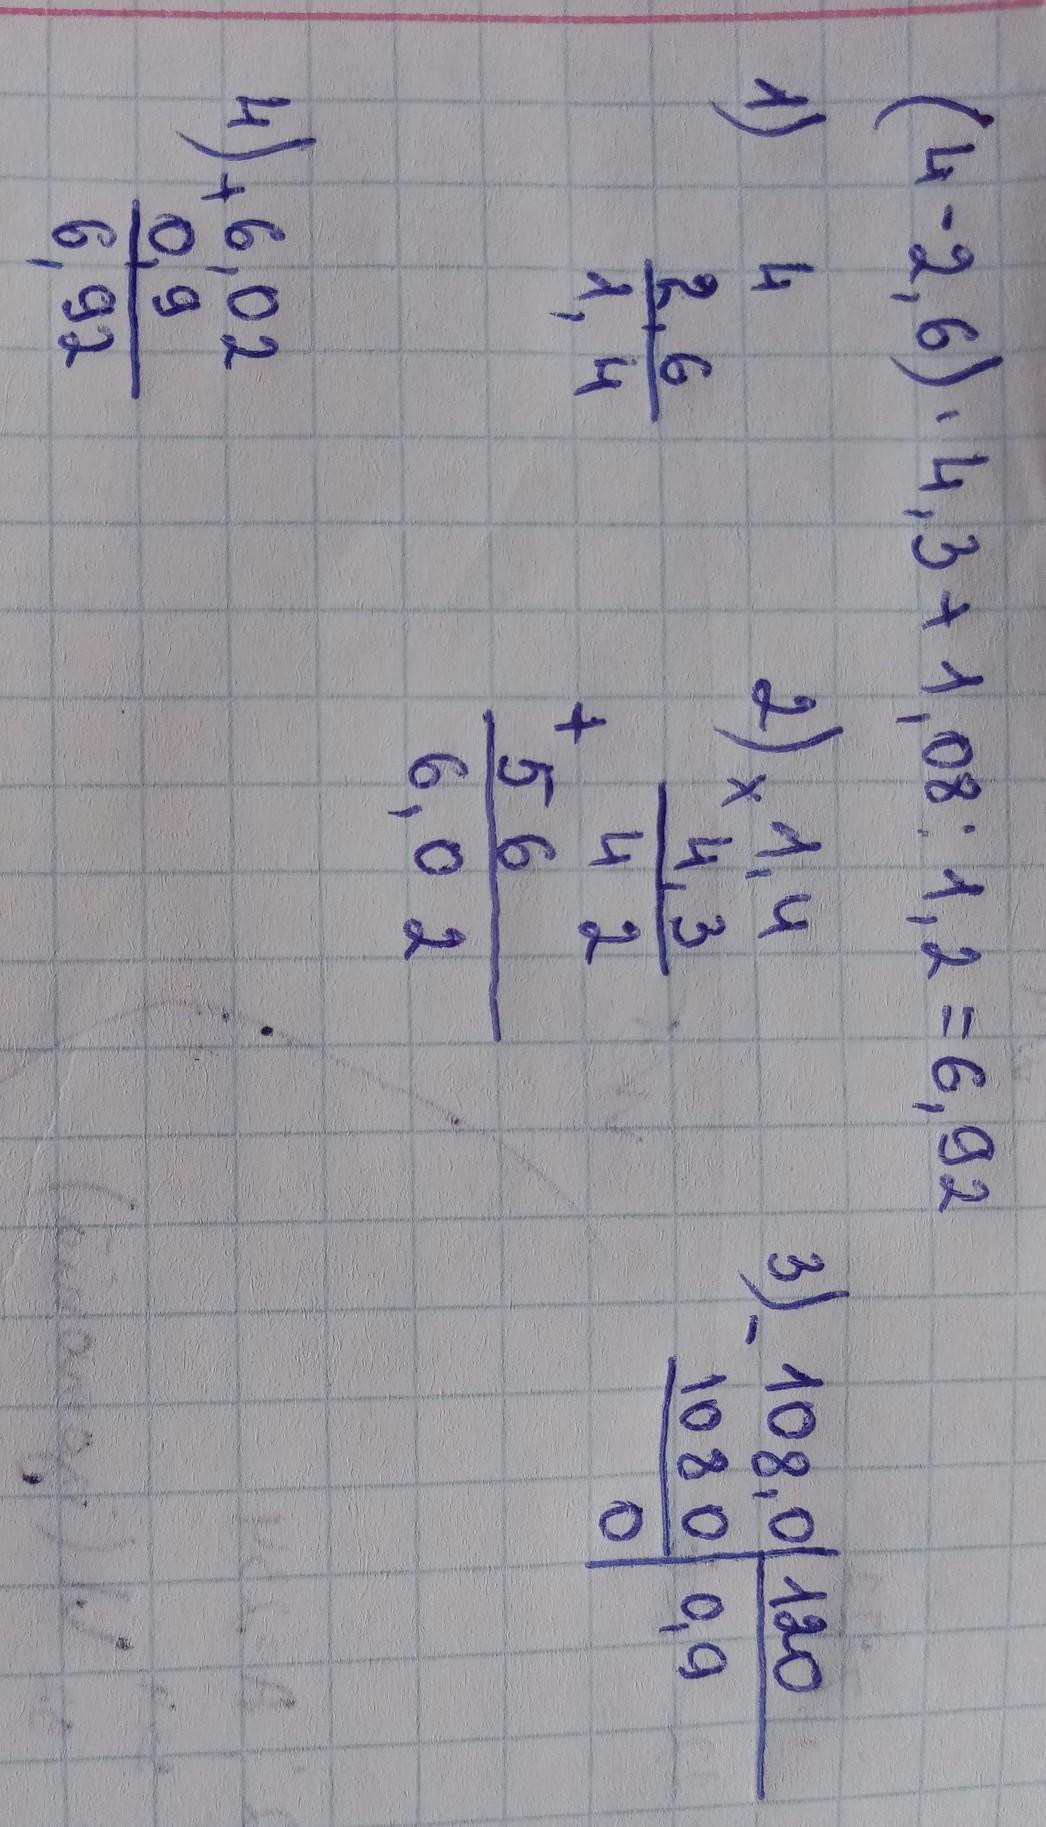 (4-2,6)·4,3+1,08:1,2=6,92
1) 4
2,6
1,4
2) × 1,4
4,3
4 2
+
5 6
6,0 2
3) - 108,0 | 120
108 0 0,9
0
4) + 6,02
0,9
6,92